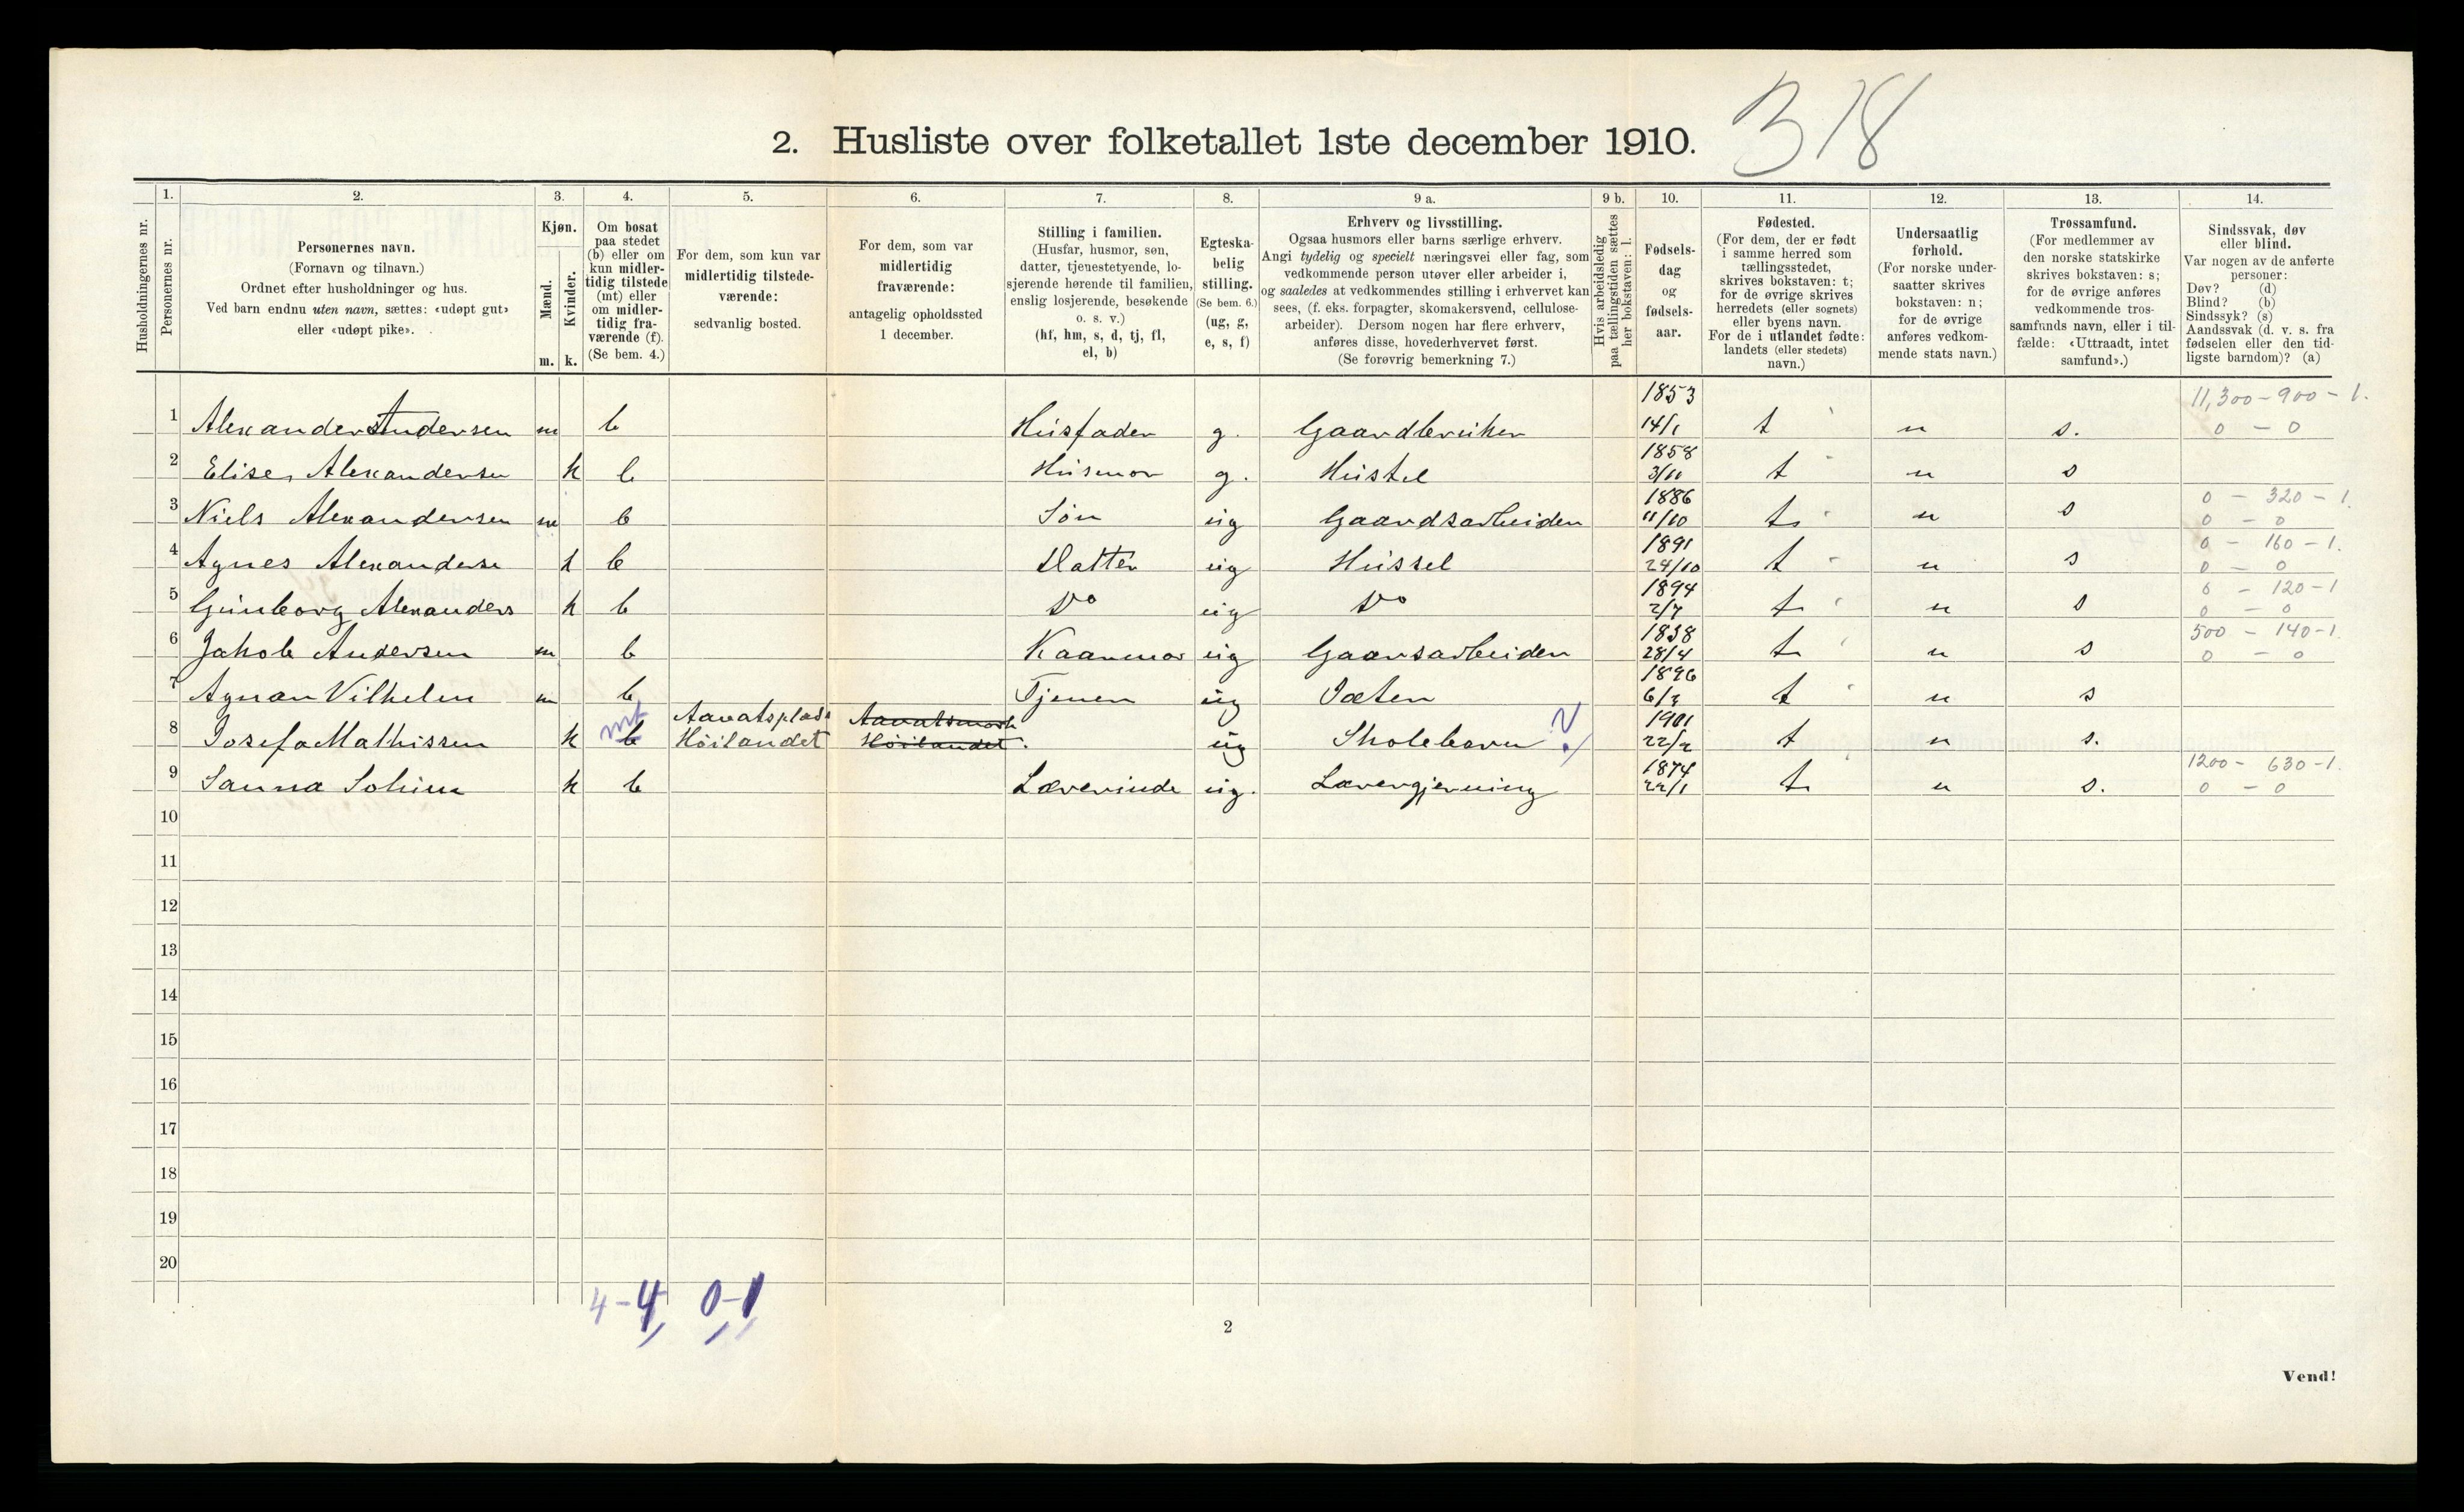 318
2. Husliste over folketallet 1ste december 1910.
Husholdningernes nr.
1.
Personernes nr.
2.
Personernes navn.
(Fornavn og tilnavn.)
Ordnet efter husholdninger og hus.
Ved barn endnu uten navn, sættes: «udøpt gut»
eller «udøpt pike».
3.
Kjøn.
Mænd.
Kvinder.
m. k.
4.
Om bosat
paa stedet
(b) eller om
kun midler-
tidig tilstede
(mt) eller
om midler-
tidig fra-
værende (f).
(Se bem. 4.)
5.
For dem, som kun var
midlertidig tilstede-
værende:
sedvanlig bosted.
6.
For dem, som var
midlertidig
fraværende:
antagelig opholdssted
1 december.
7.
Stilling i familien.
(Husfar, husmor, søn,
datter, tjenestetyende, lo-
sjerende hørende til familien,
enslig losjerende, besøkende
o. s. v.)
(hf, hm, s, d, tj, fl,
el, b)
8.
Egteska-
belig
stilling.
(Se bem. 6.)
(ug, g,
e, s, f)
9 a.
Erhverv og livsstilling.
Ogsaa husmors eller barns særlige erhverv.
Angi tydelig og specielt næringsvei eller fag, som
vedkommende person utøver eller arbeider i,
og saaledes at vedkommendes stilling i erhvervet kan
sees, (f. eks. forpagter, skomakersvend, cellulose-
arbeider). Dersom nogen har flere erhverv,
anføres disse, hovederhvervet først.
(Se forøvrig bemerkning 7.)
9 b.
Hvis arbeidsledig
paa tællingstiden sættes
her bokstaven: l.
10.
Fødsels-
dag
og
fødsels-
aar.
11.
Fødested.
(For dem, der er født
i samme herred som
tællingsstedet,
skrives bokstaven: t;
for de øvrige skrives
herredets (eller sognets)
eller byens navn.
For de i utlandet fødte:
landets (eller stedets)
navn.)
12.
Undersaatlig
forhold.
(For norske under-
saatter skrives
bokstaven: n;
for de øvrige
anføres vedkom-
mende stats navn.)
13.
Trossamfund.
(For medlemmer av
den norske statskirke
skrives bokstaven: s;
for de øvrige anføres
vedkommende tros-
samfunds navn, eller i til-
fælde: «Uttraadt, intet
samfund».)
14.
Sindssvak, døv
eller blind.
Var nogen av de anførte
personer:
Døv? (d)
Blind? (b)
Sindssyk? (s)
Aandssvak (d. v. s. fra
fødselen eller den tid-
ligste barndom)? (a)
1853 11,300 - 900 - 1.
1 Alexander Andersen m b Husfader g. Gaardbruker 14/1 t n s. 0 - 0
1858
2 Elise Alexandersen k b Husmor g. Hustel 3/10 t n s
1886 0 - 320 - 1
3 Niels Alexandersen m b Søn ug Gaardsarbeider 11/10 t n s 0 - 0
1891 0 - 160 - 1.
4 Agnes Alexanderse k b Datter ug Hussel 24/10 t n s 0 - 0
1894 0 - 120 - 1
5 Gunborg Alexanders k b Do ug Do 2/7 t n s 0 - 0
1838 500 - 140 - 1.
6 Jakob Andersen m b Kaarmor ug Gaarsarbeider 28/4 t n s 0 - 0
1896
7 Agnar Vilhelm m b Tjener ug Jæter t n s
mt Aavatsplads Aavatsmark 1901
8 Josefa Mathissen k b Høilandet Høilandet. ug Skolebarn ? 22/2 t n s.
1874 1200 - 630 - 1.
9 Sanna Solum k b Lærerinde ug. Lærergjerning 22/1 t n s. 0 - 0
10
11
12
13
14
15
16
17
18
19
20
4-4, 0-1
2
Vend!